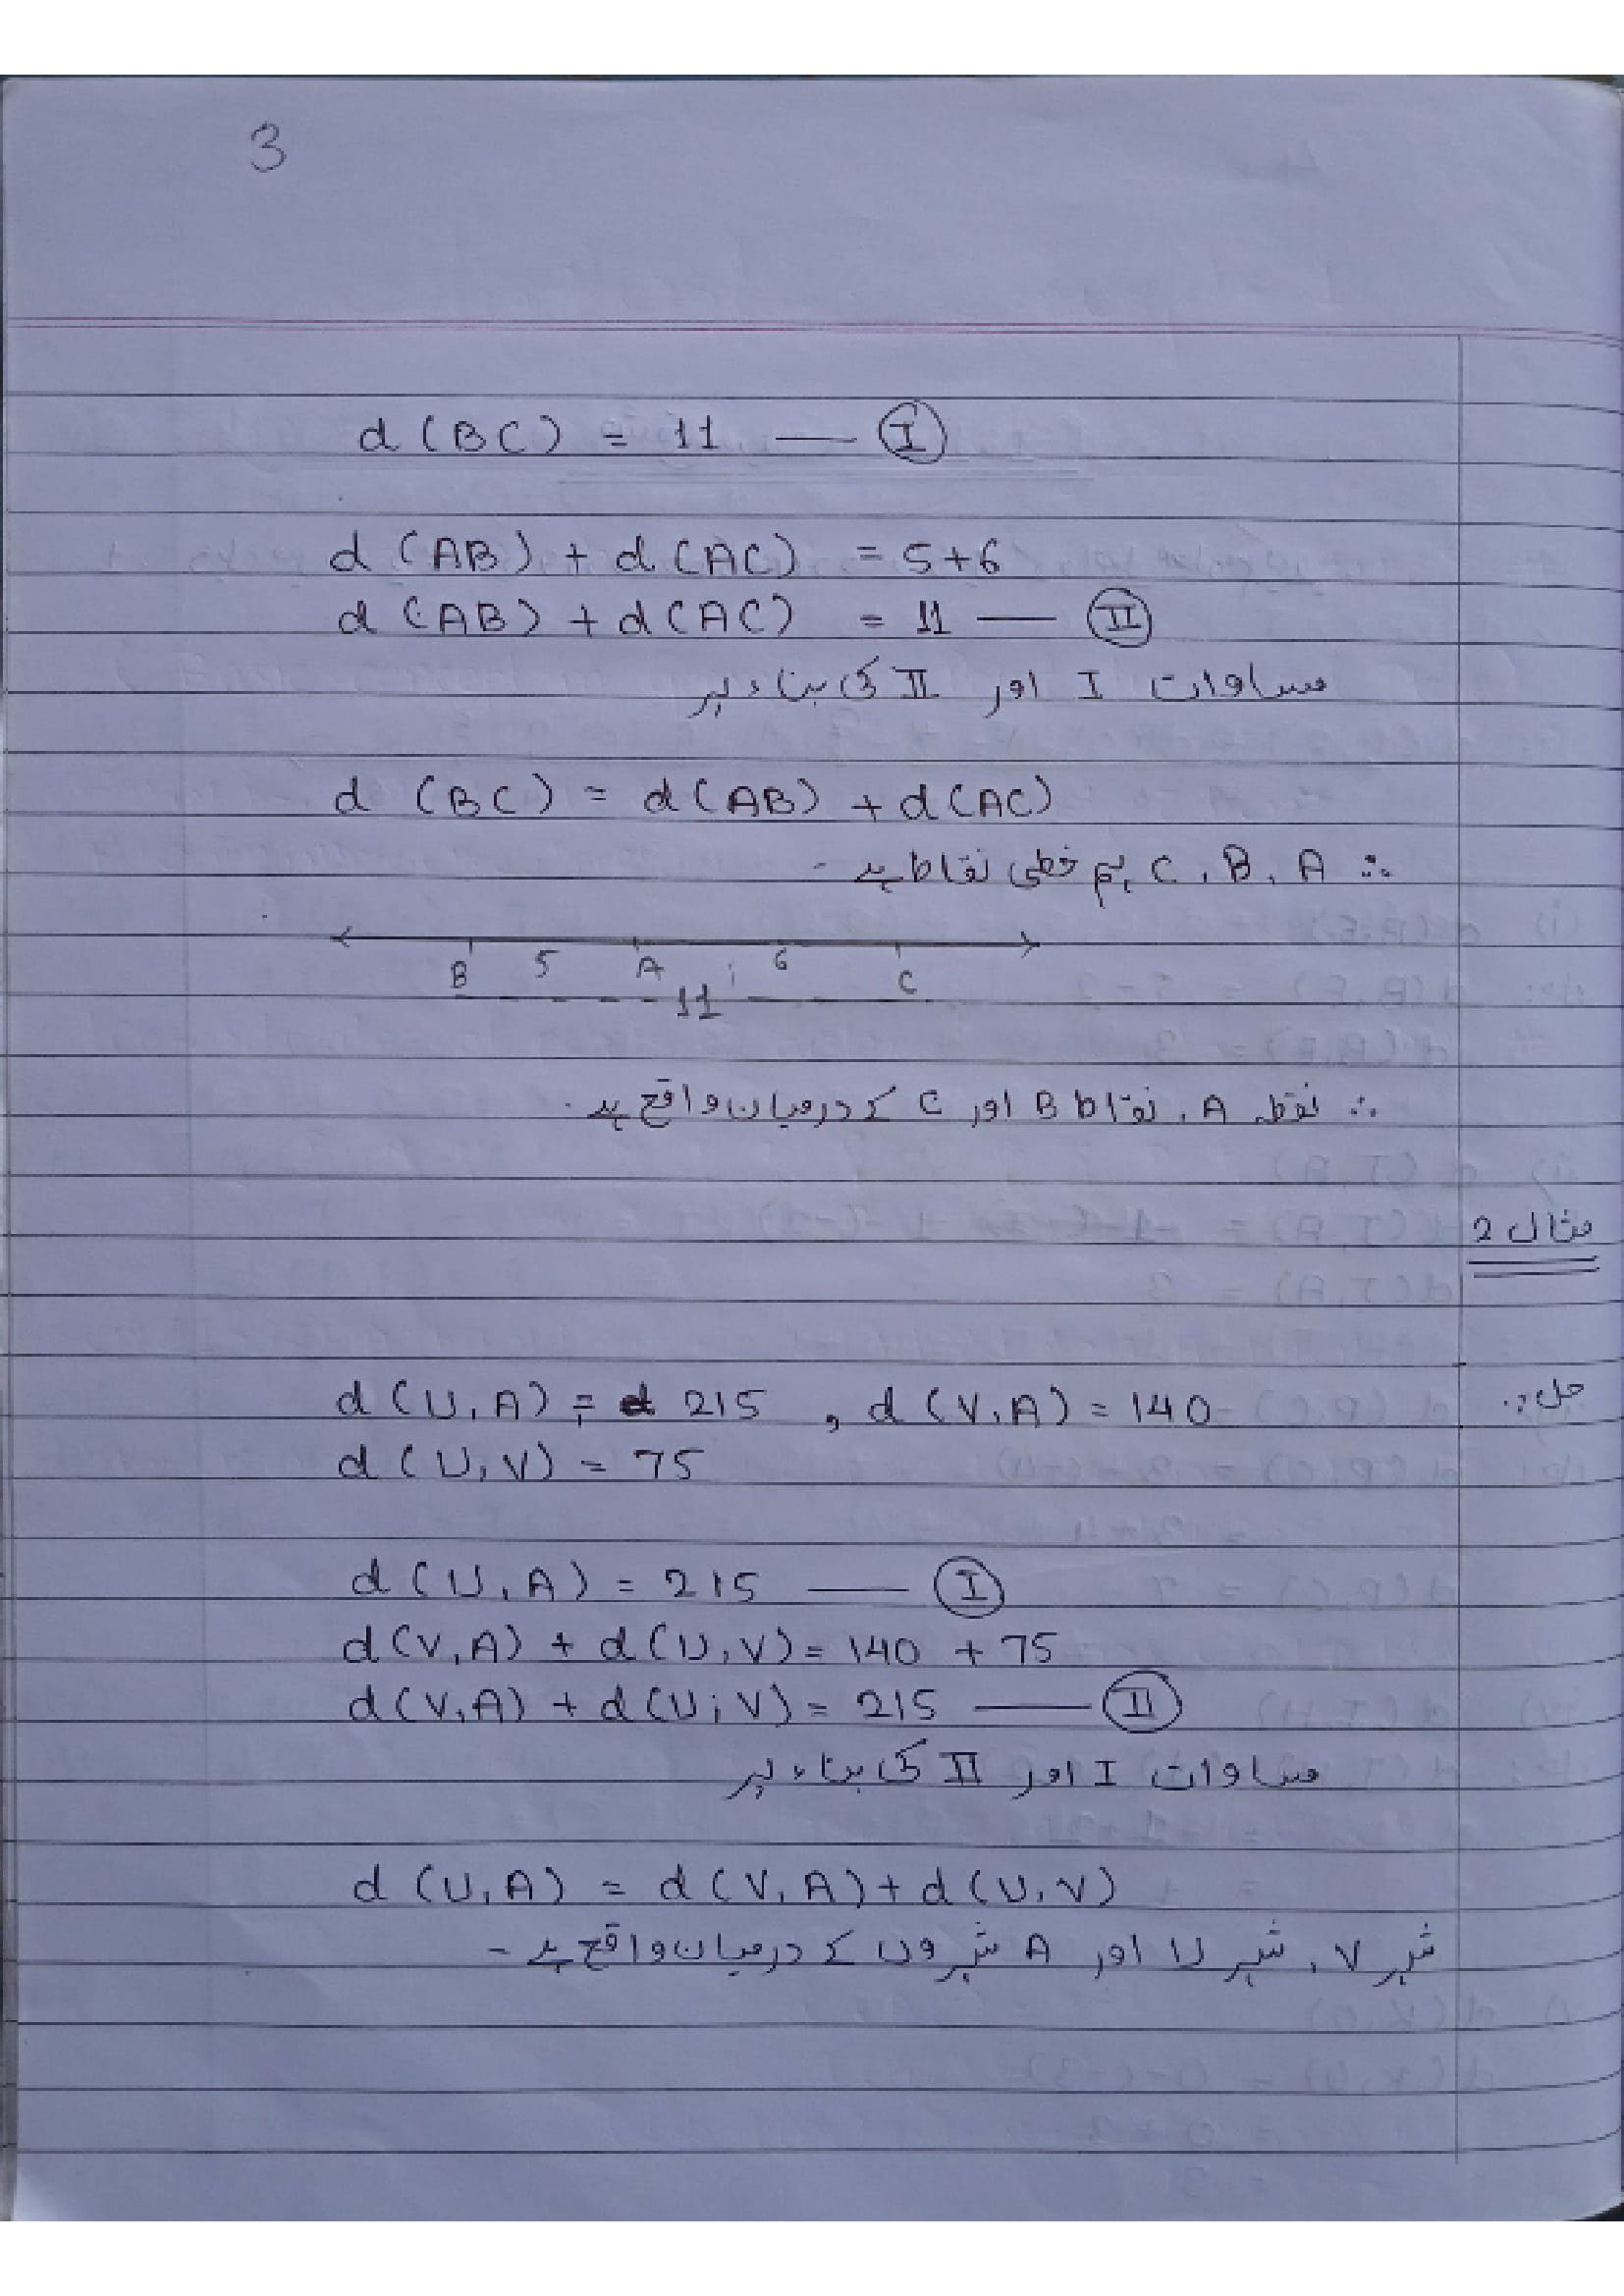 3
d (BC) = 11 —— I
d (AB) + d (AC) = 5+6
d (AB) + d (AC) = 11 —— II
مساوات I اور II کی بناء پر
d (BC) = d (AB) + d (AC)
∴ C , B , A ہم خطی نقاط ہے -
B 5 A 6 C
11
∴ نقطہ A ، نقاط B اور C کے درمیان واقع ہے -
مثال 2
حل :
d (U, A) = 215 , d (V, A) = 140
d (U, V) = 75
d (U, A) = 215 —— I
d (V, A) + d (U, V) = 140 + 75
d (V, A) + d (U, V) = 215 —— II
مساوات I اور II کی بناء پر
d (U, A) = d (V, A) + d (U, V)
شہر V ، شہر U اور A شہروں کے درمیان واقع ہے -